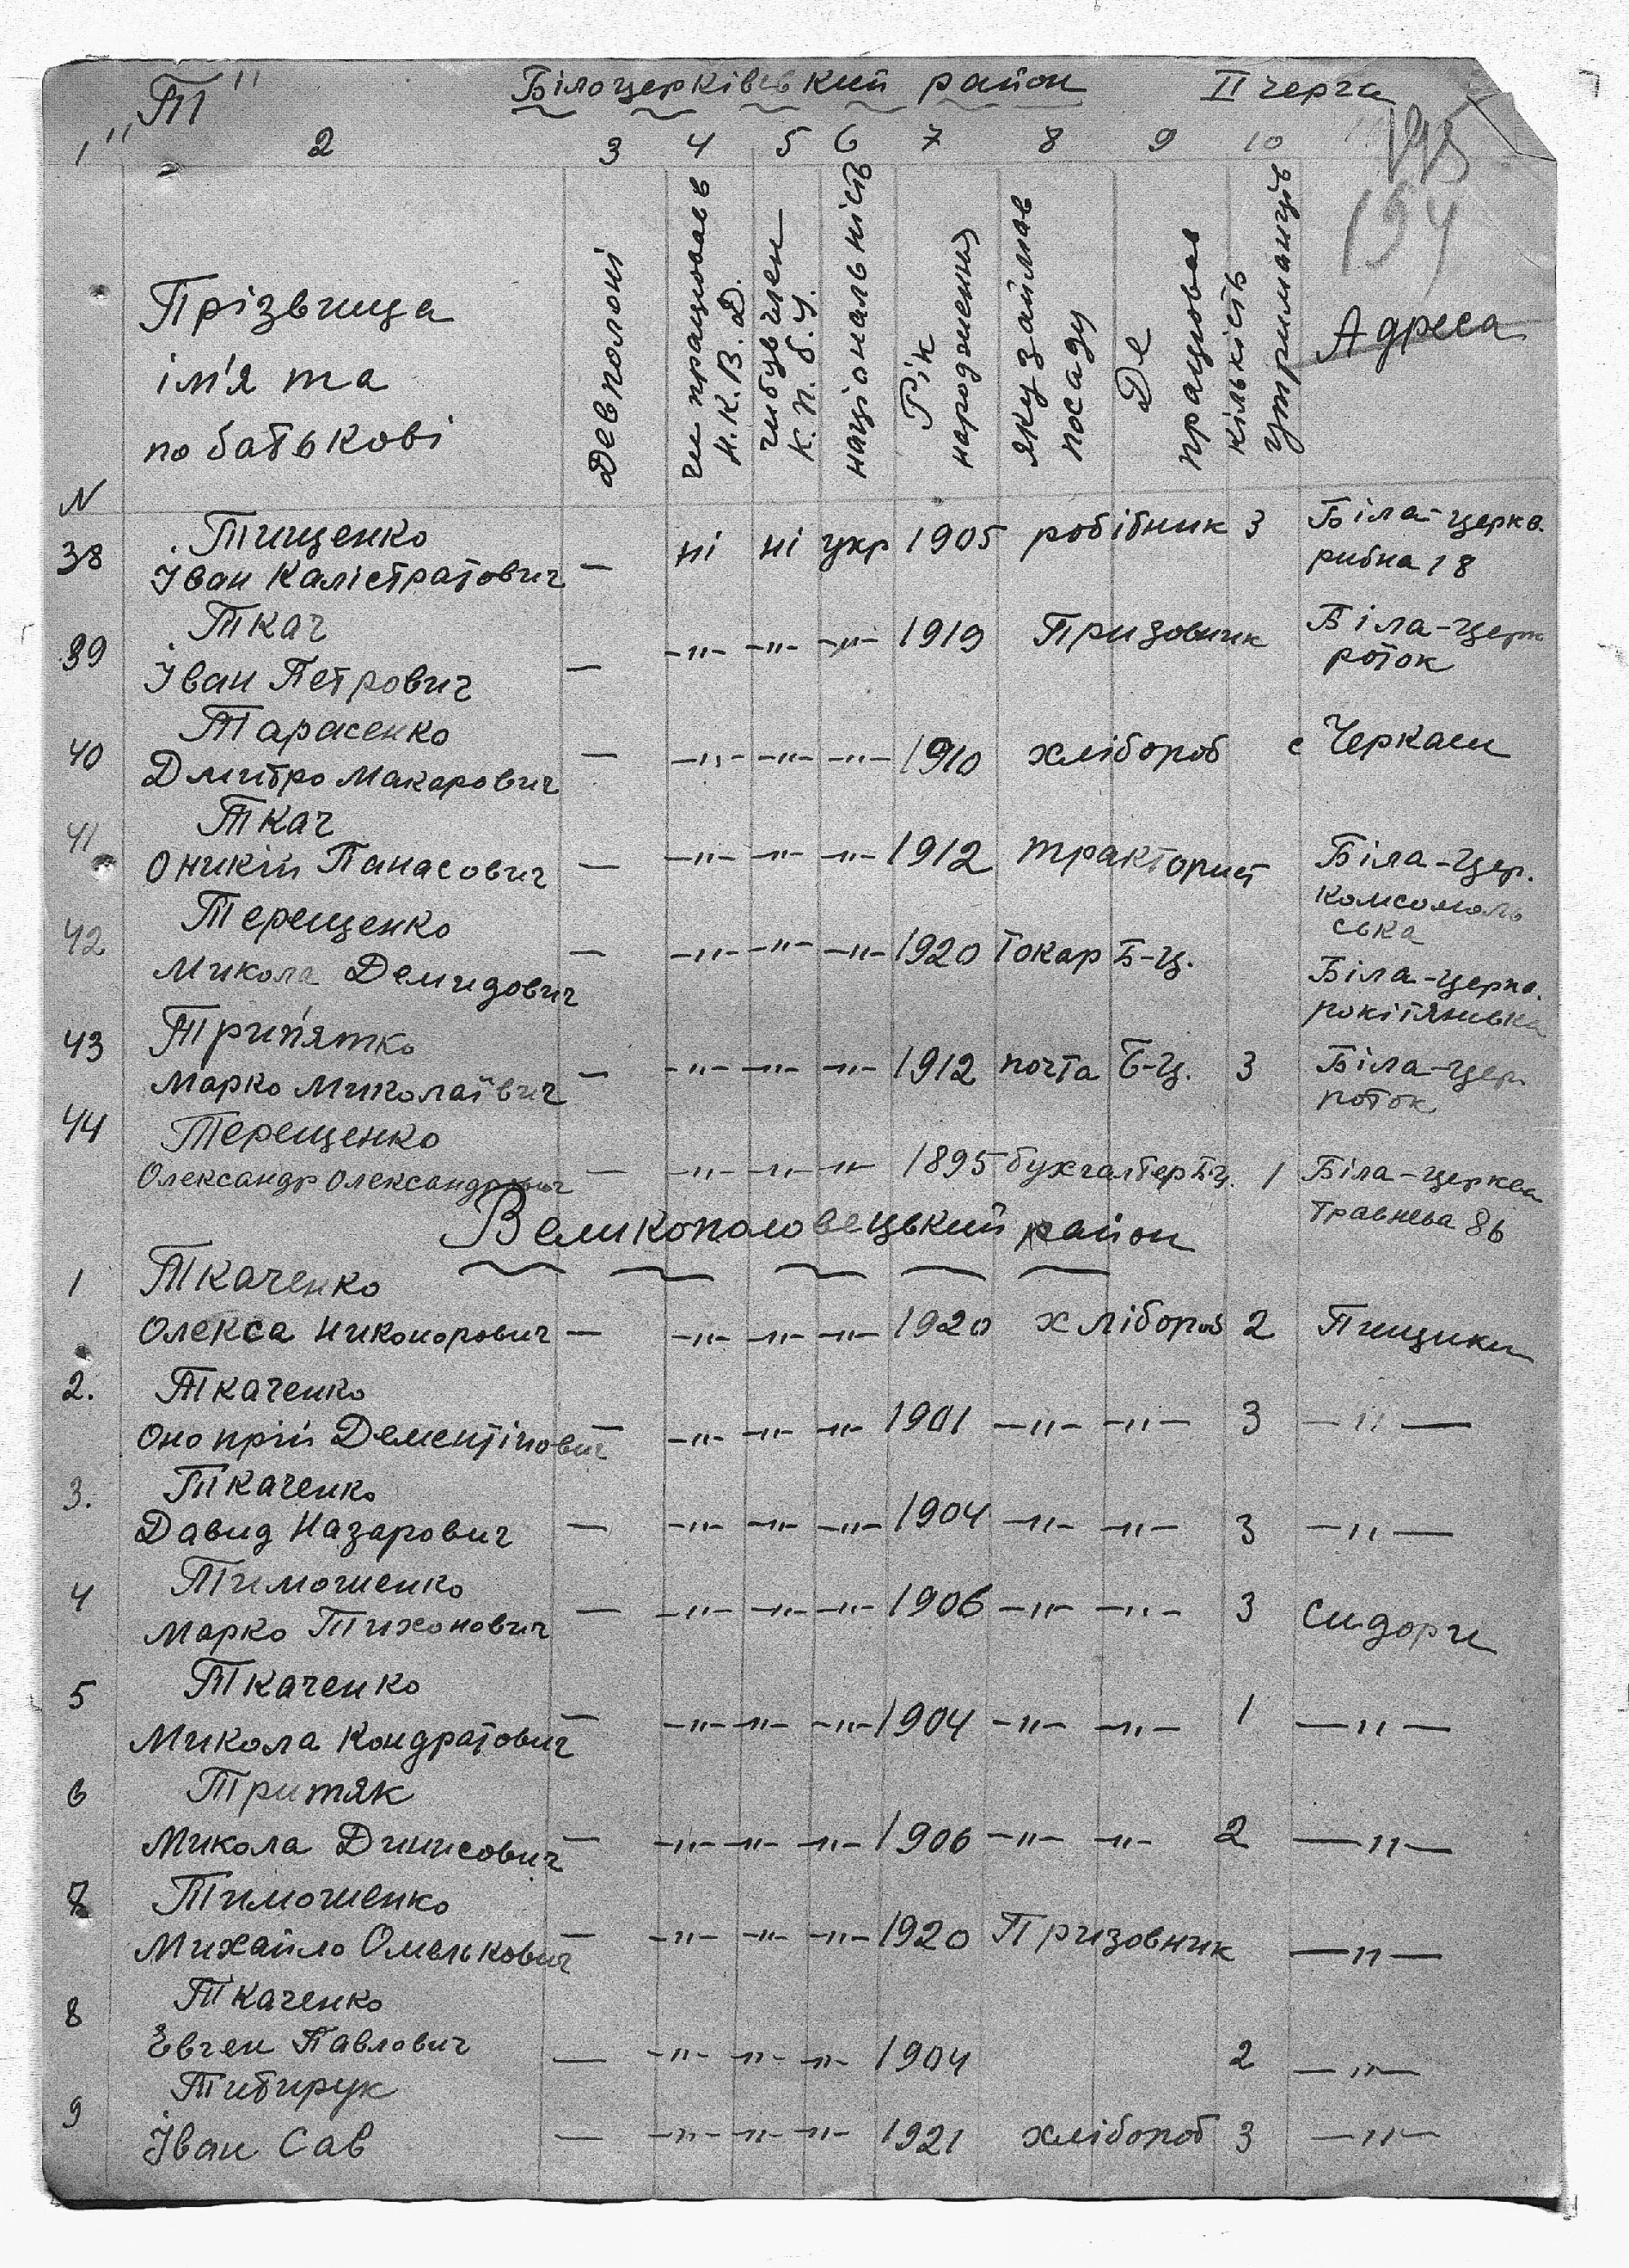 „Т" Білоцерківський район II черга
1 2 3 4 5 6 7 8 9 10
194
Прізвища
ім'я та
по батькові
Де в полоні
чи працював в
Н.К.В.Д.
чи був член
К.П.б.У.
національність
Рік
народження
яку займав
посаду
Де
працював
кількість
утриманців
Адреса
N
38 Тищенко
Іван Калістратович — ні ні укр 1905 робібник 3 Біла-церква
рибна 18
39 Ткач
Іван Петрович — -"- -"- -"- 1919 Призовник Біла-церк
роток
40 Тарасенко
Дмитро Макарович — -"- -"- -"- 1910 хлібороб с Черкаси
41 Ткач
Оникій Панасович — -"- -"- -"- 1912 тракторист Біла-Цер.
Комсомоль
ська
42 Терещенко
Микола Демидович — -"- -"- -"- 1920 Токар Б-Ц. Біла-церкв.
рокітянська
43 Трип'ятко
Марко Миколаївич — -"- -"- -"- 1912 почта Б-Ц. 3 Біла-цер.
поток
44 Терещенко
Олександр Олександрович — -"- -"- -"- 1895 бухгалтер Б-Ц. 1 Біла-церква
Травнева 86
Великополовецький район
1 Ткаченко
Олекса Никонорович — -"- -"- -"- 1920 хлібороб 2 Пищики
2. Ткаченко
Онопрій Дементійович — -"- -"- -"- 1901 -"- -"- 3 -"-
3. Ткаченко
Давид Назарович — -"- -"- -"- 1904 -"- -"- 3 -"-
4 Тимошенко
Марко Тихонович — -"- -"- -"- 1906 -"- -"- 3 Сидори
5 Ткаченко
Микола Кондратович — -"- -"- -"- 1904 -"- -"- 1 -"-
6 Тритяк
Микола Динисович — -"- -"- -"- 1906 -"- -"- 2 -"-
7 Тимошенко
Михайло Омелькович — -"- -"- -"- 1920 Призовник -"-
8 Ткаченко
Евген Павлович — -"- -"- -"- 1904 2 -"-
9 Титирук
Іван Сав — -"- -"- -"- 1921 хлібороб 3 -"-